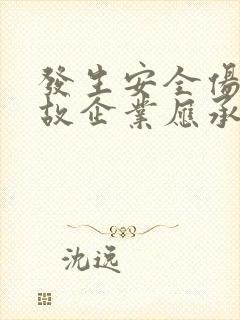 發生安全傷
故企業應承
沈远